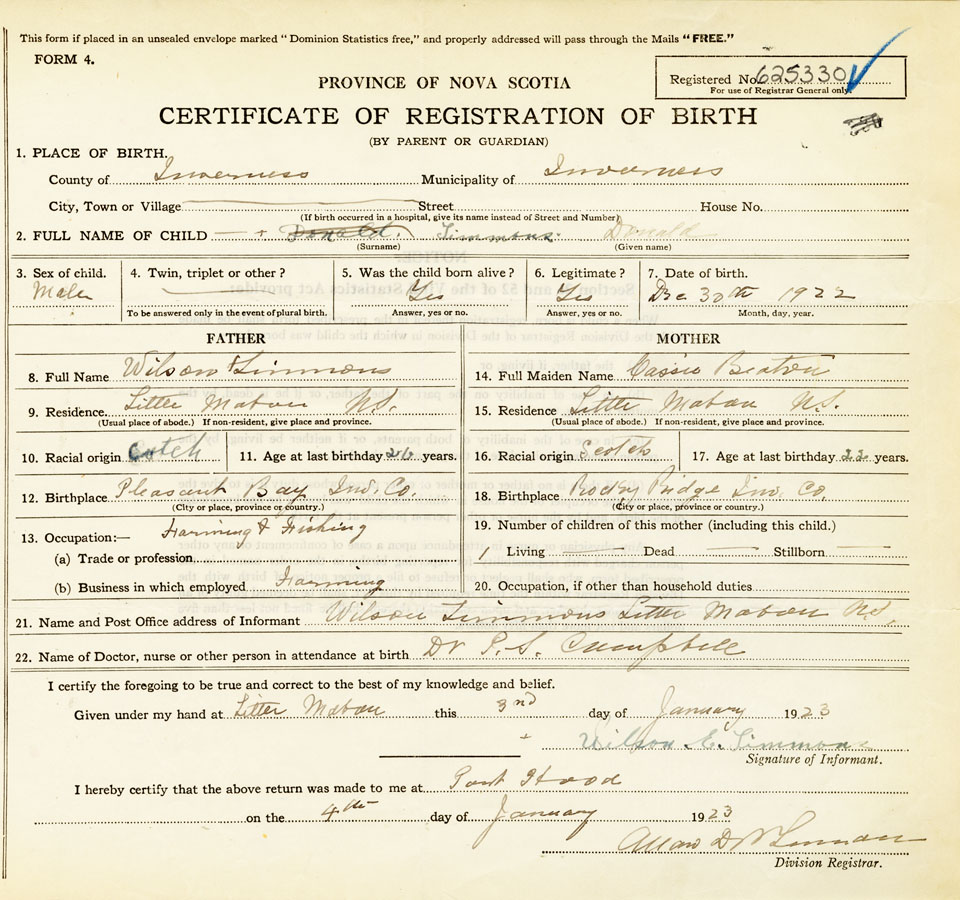 This form if placed in an unsealed envelope marked "Dominion Statistics free," and properly addressed will pass through the Mails "FREE."
FORM 4.
Registered No. 625330
For use of Registrar General only.
PROVINCE OF NOVA SCOTIA
CERTIFICATE OF REGISTRATION OF BIRTH
(BY PARENT OR GUARDIAN)
1. PLACE OF BIRTH.
County of Inverness Municipality of Inverness
City, Town or Village Street House No.
(If birth occurred in a hospital, give its name instead of Street and Number)
2. FULL NAME OF CHILD Donald Simmons Donald
(Surname) (Given name)
3. Sex of child. 4. Twin, triplet or other? 5. Was the child born alive? 6. Legitimate? 7. Date of birth.
Male Yes Yes Dec 30th 1922
To be answered only in the event of plural birth. Answer, yes or no. Answer, yes or no. Month, day, year.
FATHER MOTHER
8. Full Name Wilson Simmons
14. Full Maiden Name Cassie Beaton
9. Residence. Little Mabou N.S.
15. Residence Little Mabou N.S.
(Usual place of abode.) If non-resident, give place and province.
(Usual place of abode.) If non-resident, give place and province.
10. Racial origin Scotch 11. Age at last birthday 26 years.
16. Racial origin Scotch 17. Age at last birthday 22 years.
12. Birthplace Pleasant Bay Inv. Co.
(City or place, province or country.)
18. Birthplace Rocky Ridge Inv. Co.
(City or place, province or country.)
13. Occupation:— Farming & Fishing
(a) Trade or profession
(b) Business in which employed Farming
19. Number of children of this mother (including this child.)
1 Living Dead Stillborn
20. Occupation, if other than household duties
21. Name and Post Office address of Informant Wilson Simmons Little Mabou N.S.
22. Name of Doctor, nurse or other person in attendance at birth Dr P. S. Campbell
I certify the foregoing to be true and correct to the best of my knowledge and belief.
Given under my hand at Little Mabou this 3rd day of January 1923
Wilson C. Simmons
Signature of Informant.
I hereby certify that the above return was made to me at Port Hood
on the 4th day of January 1923
Division Registrar.